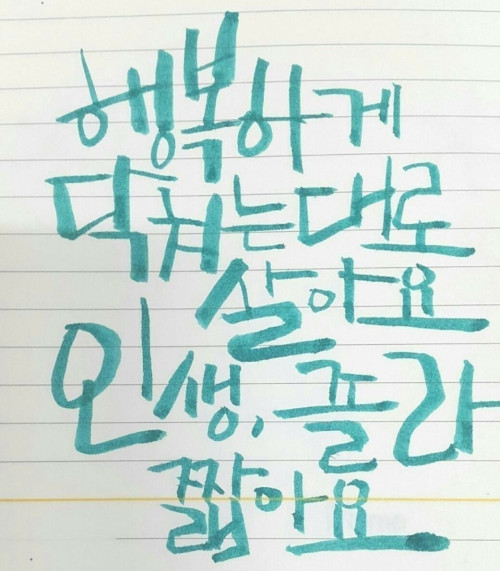 행복하게
닥쳐는대로
살아요
인생, 졸라
짧아요